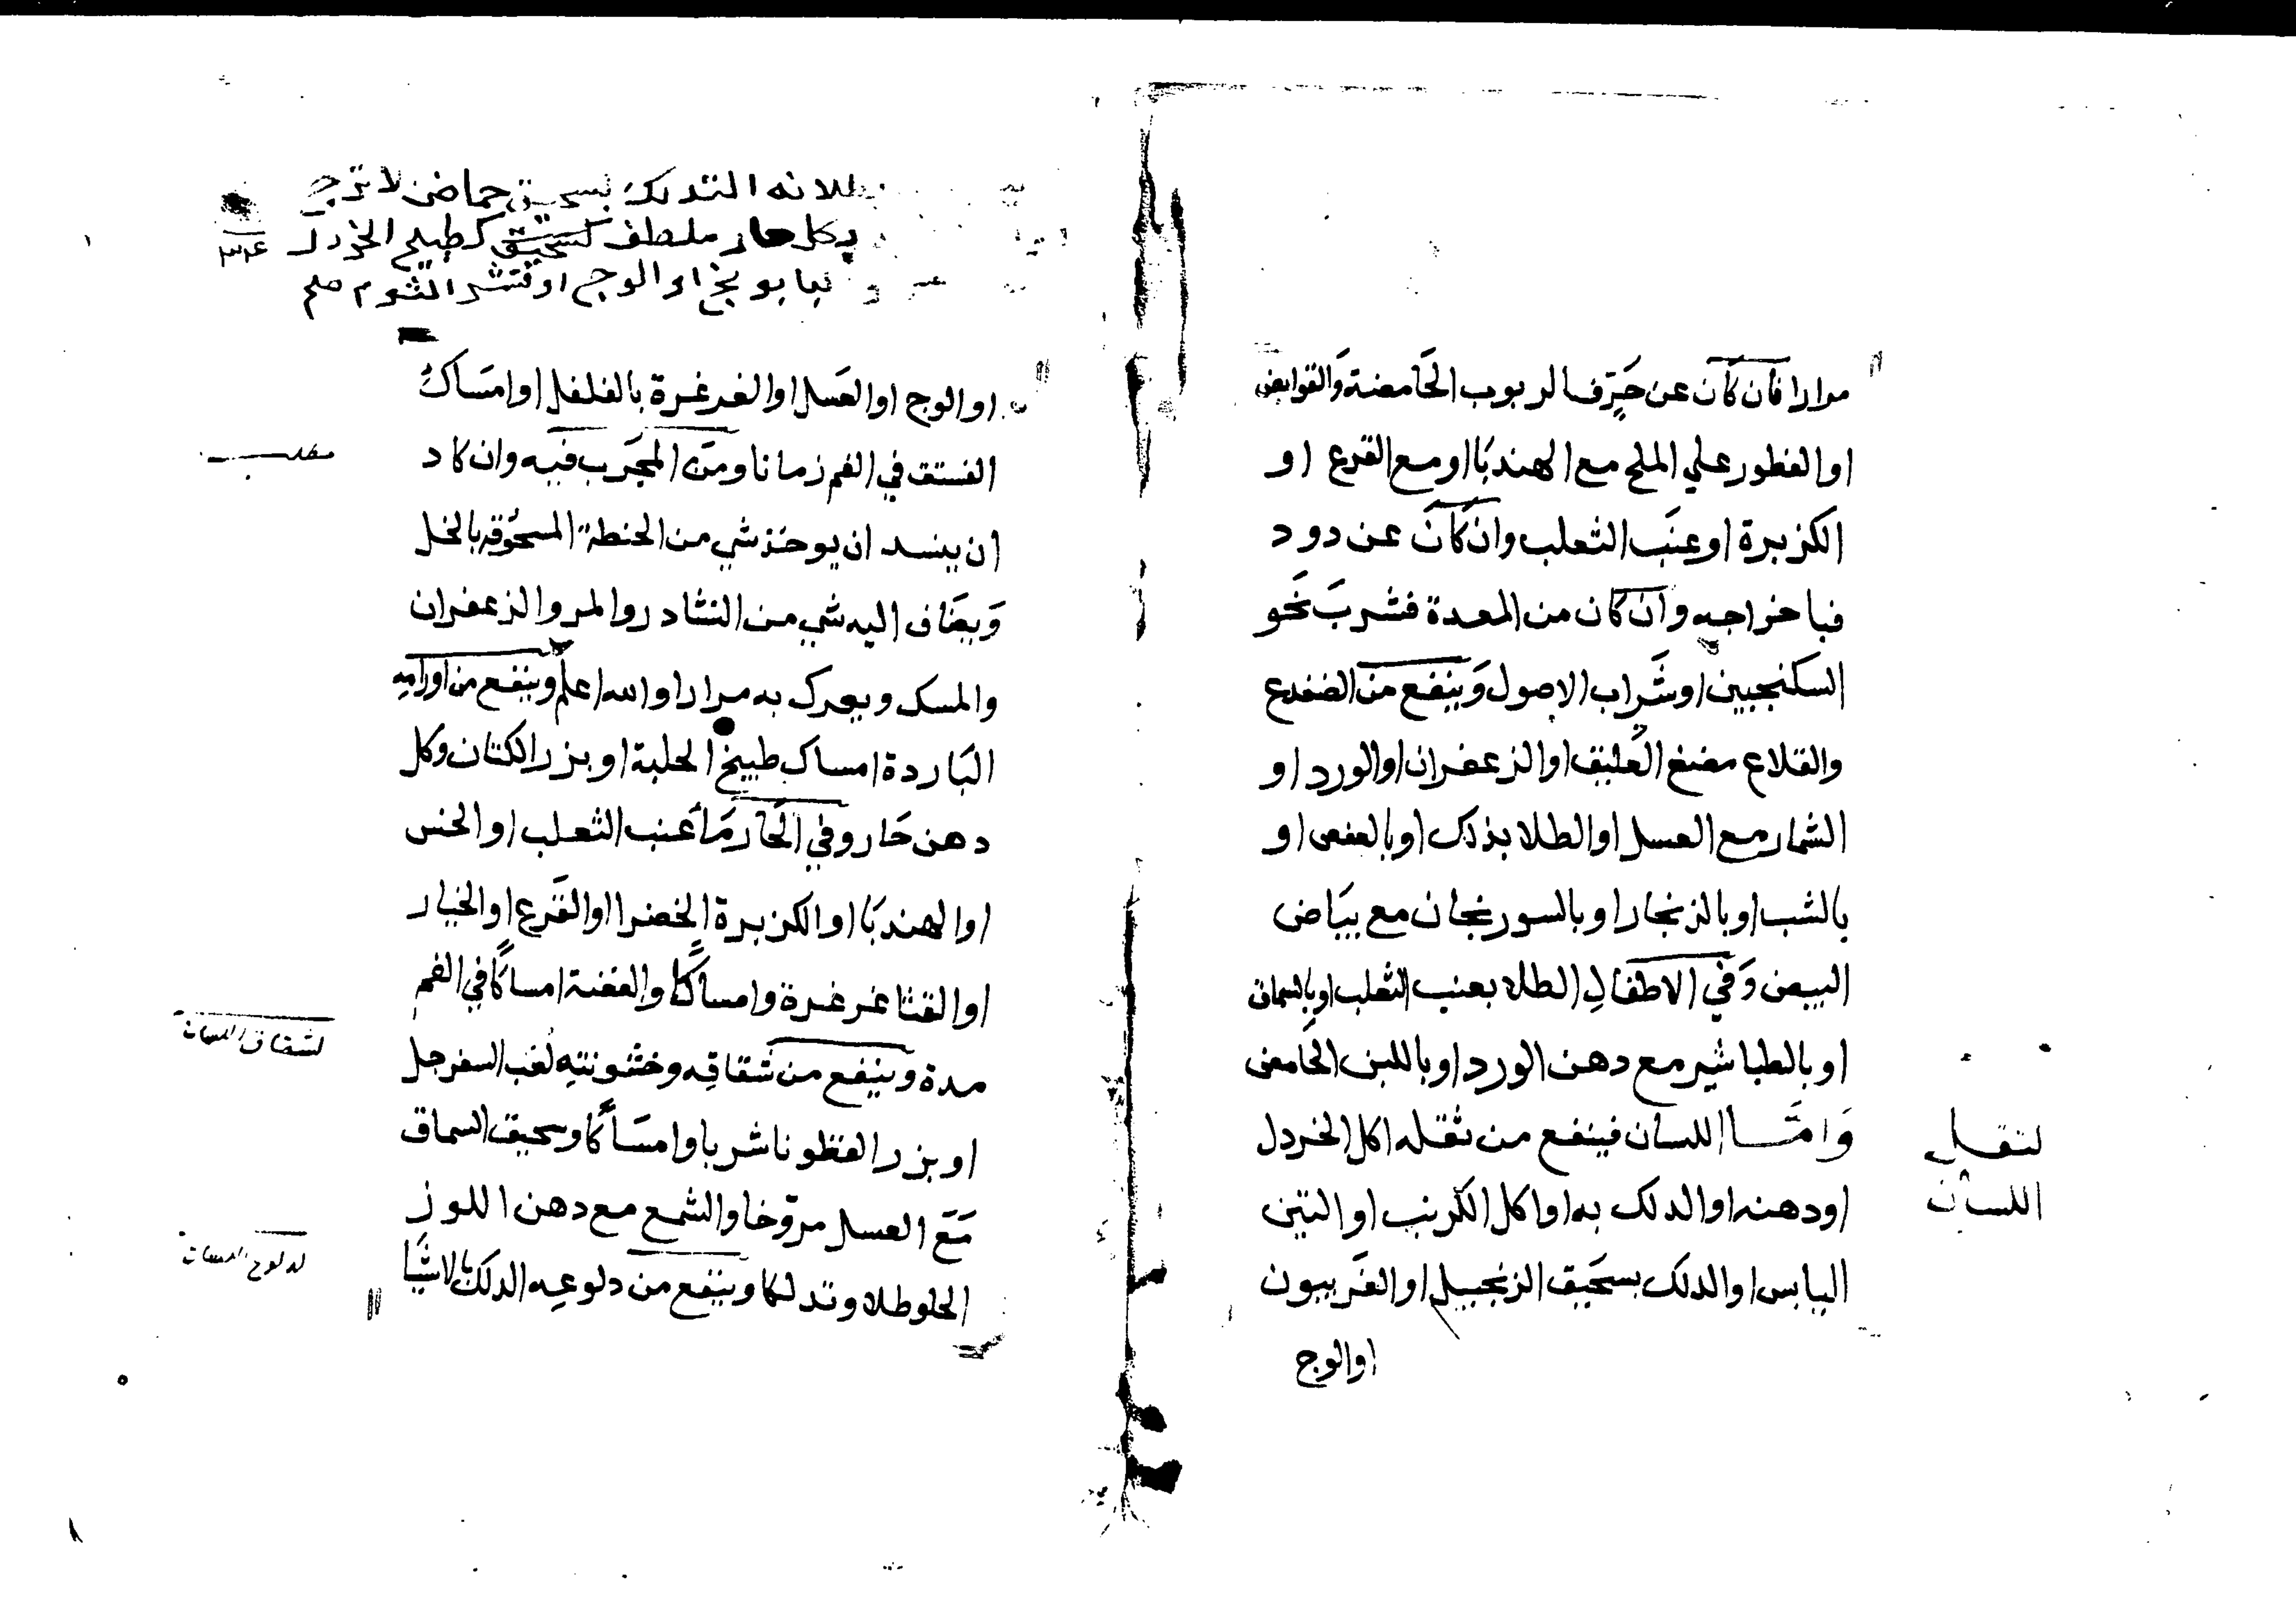 مرارا فان كان عن حر فالربوب الحامضة والقوابض
او الفطور علي الملح مع الهندبا او مع القرع او
الكزبرة او عنب الثعلب وان كان عن دود
فباخراجه وان كان من المعدة فشرب نحو
السكنجبين او شراب الاصول وينفع من الضفدع
والقلاع مضغ العليق او الزعفران او الورد او
الشمار مع العسل او الطلا بذلك او بالعفص او
بالشب او بالزنجار او بالسورنجان مع بياض
البيض وفي الاطفال الطلا بعنب الثعلب او بالسماق
او بالطباشير مع دهن الورد او باللبن الحامض
واما اللسان فينفع من ثقله اكل الخردل
او دهنه او الدلك به او اكل الكرنب او التين
اليابس او الدلك بسحيق الزنجبيل او الفربيون
او الوج
لثقل
اللسان
التدلك بسحيق حماض لاترج
وكل حار ملطف كطبيخ الخردل
او الوج او قشر الثوم صح
٣٣٤
او الوج او العسل او الغرغرة بالفلفل او امساك
الفستق في الفم زمانا ومن المجرب فيه وان كاد
ان ينسد ان يوخذ شي من الحنطة المسحوقه بالخل
ويضاف اليه شي من النشادر والمر والزعفران
والمسك ويعرك به مرارا والله اعلم وينفع من اورامه
الباردة امساك طبيخ الحلبة او بزر الكتان وكل
دهن حار وفي الحار ما عنب الثعلب او الخس
او الهندبا او الكزبرة الخضرا او القرع او الخيار
او القثا غرغرة وامساكا والفضة امساكا في الفم
مدة وينفع من شقاقه وخشونته لعب السفرجل
او بزر القطونا شربا وامساكا وسحيق السماق
مع العسل مروخا والشمع مع دهن اللوز
الحلو طلا وتدلكا وينفع من دلوعه الدلك بالاشيا
مطلب
لشقاق اللسان
لدلوع اللسان